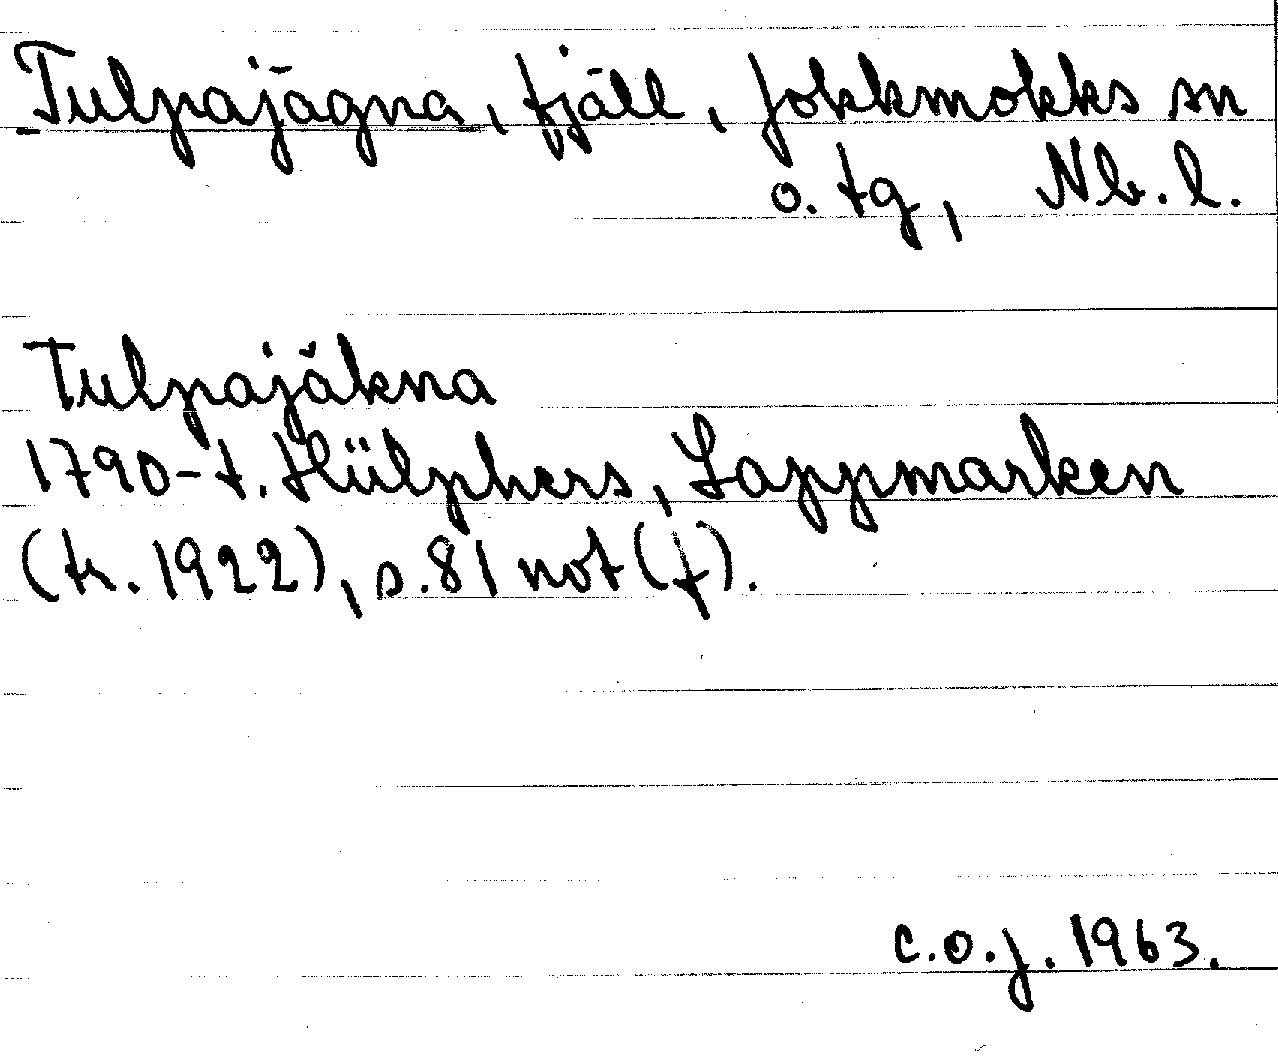 Tulpajägna, fjäll, Jokkmokks sn
o. tg, Nb. l.
Tulpajäkna
1790-t. Hülphers, Lappmarken
(tr. 1922), s. 81 not (f).
C.O.J. 1963.